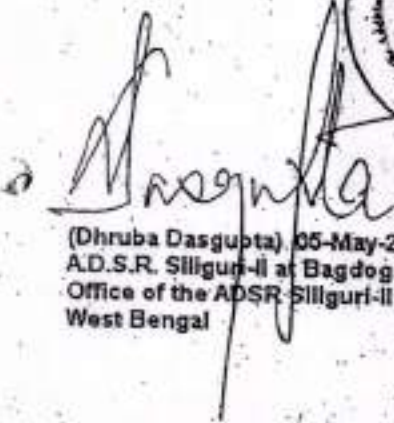 Dasgupta
(Dhruba Dasgupta) 05-May-2
A.D.S.R. Siliguri-II at Bagdog
Office of the ADSR Siliguri-II
West Bengal